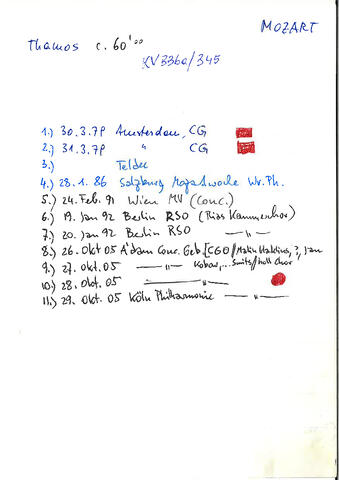 MOZART
Thamos c. 60'00
KV 336a/345
1.) 30.3.79 Amsterdam, CG
2.) 31.3.79 " CG
3.) Teldec
4.) 28.1.86 Salzburg Mozartwoche Wr. Ph.
5.) 24. Feb. 91 Wien MV (Conc.)
6.) 19. Jan 92 Berlin RSO (Rias Kammerchor)
7.) 20. Jan 92 Berlin RSO —"—
8.) 26. Okt 05 A'dam Conc. Geb. (CGO/ ?, Jan
9.) 27. Okt. 05 —"— Smits/Holl Chor
10.) 28. Okt. 05 —"—
11.) 29. Okt. 05 Köln Philharmonie —"—